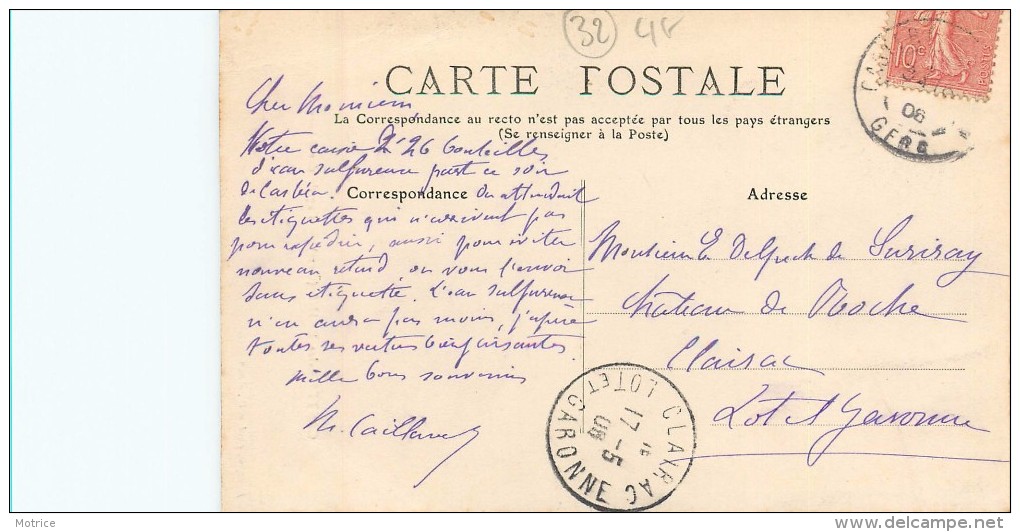 32 4f
CARTE POSTALE
La Correspondance au recto n'est pas acceptée par tous les pays étrangers
(Se renseigner à la Poste)
Correspondance
Adresse
10c
POSTES
GERS
08
Cher Monsieur
Votre caisse de 26 bouteilles
d'eau sulfureuse part ce soir
de Castéra. On attendait
les étiquettes qui n'arrivent pas
pour expédier, aussi pour éviter
nouveau retard on vous l'envoi
sans étiquette. L'eau sulfureuse
n'en aura pas moins, j'espère
toutes ses vertus bienfaisantes.
Mille bons souvenirs
Monsieur E. Delpech de
Château de Roche
Clairac
Lot et Garonne
CLAIRAC
LOT ET GARONNE
17 -5
08
Motrice
delcampe.net